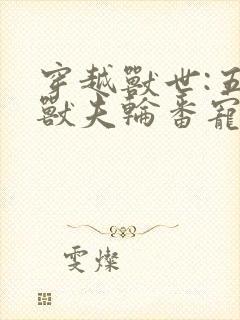 穿越獸世:五
獸夫輪番寵
雯燦